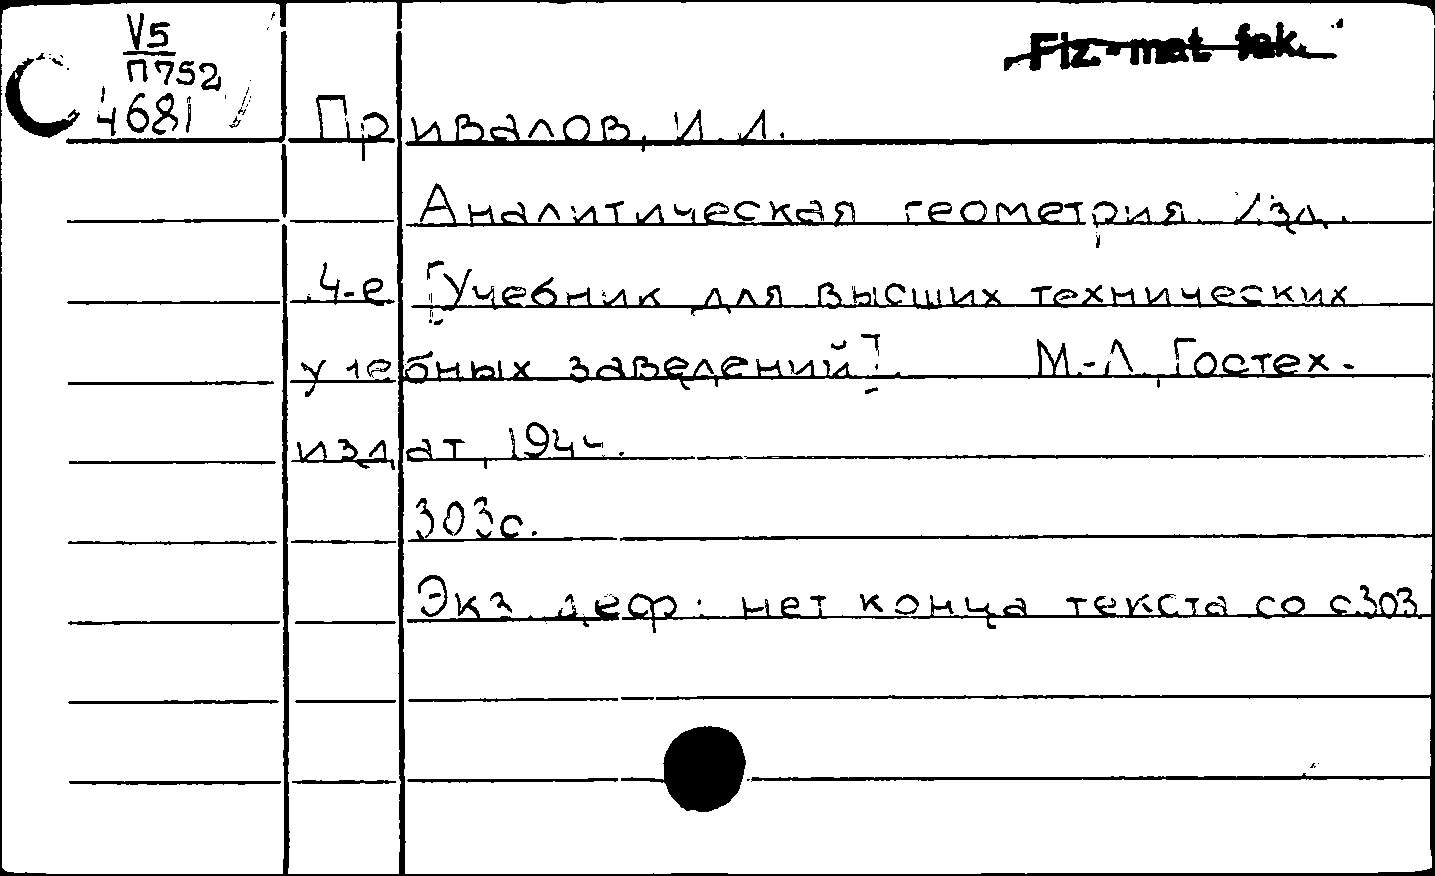 V5
П752
4681
Fiz.-mat. fak.
Привалов, И. И.
Аналитическая геометрия. Изд.
4-е [Учебник для высших технических
учебных заведений]. М.-Л., Гостех-
издат, 1944.
303с.
Экз. деф.: нет конца текста со с303